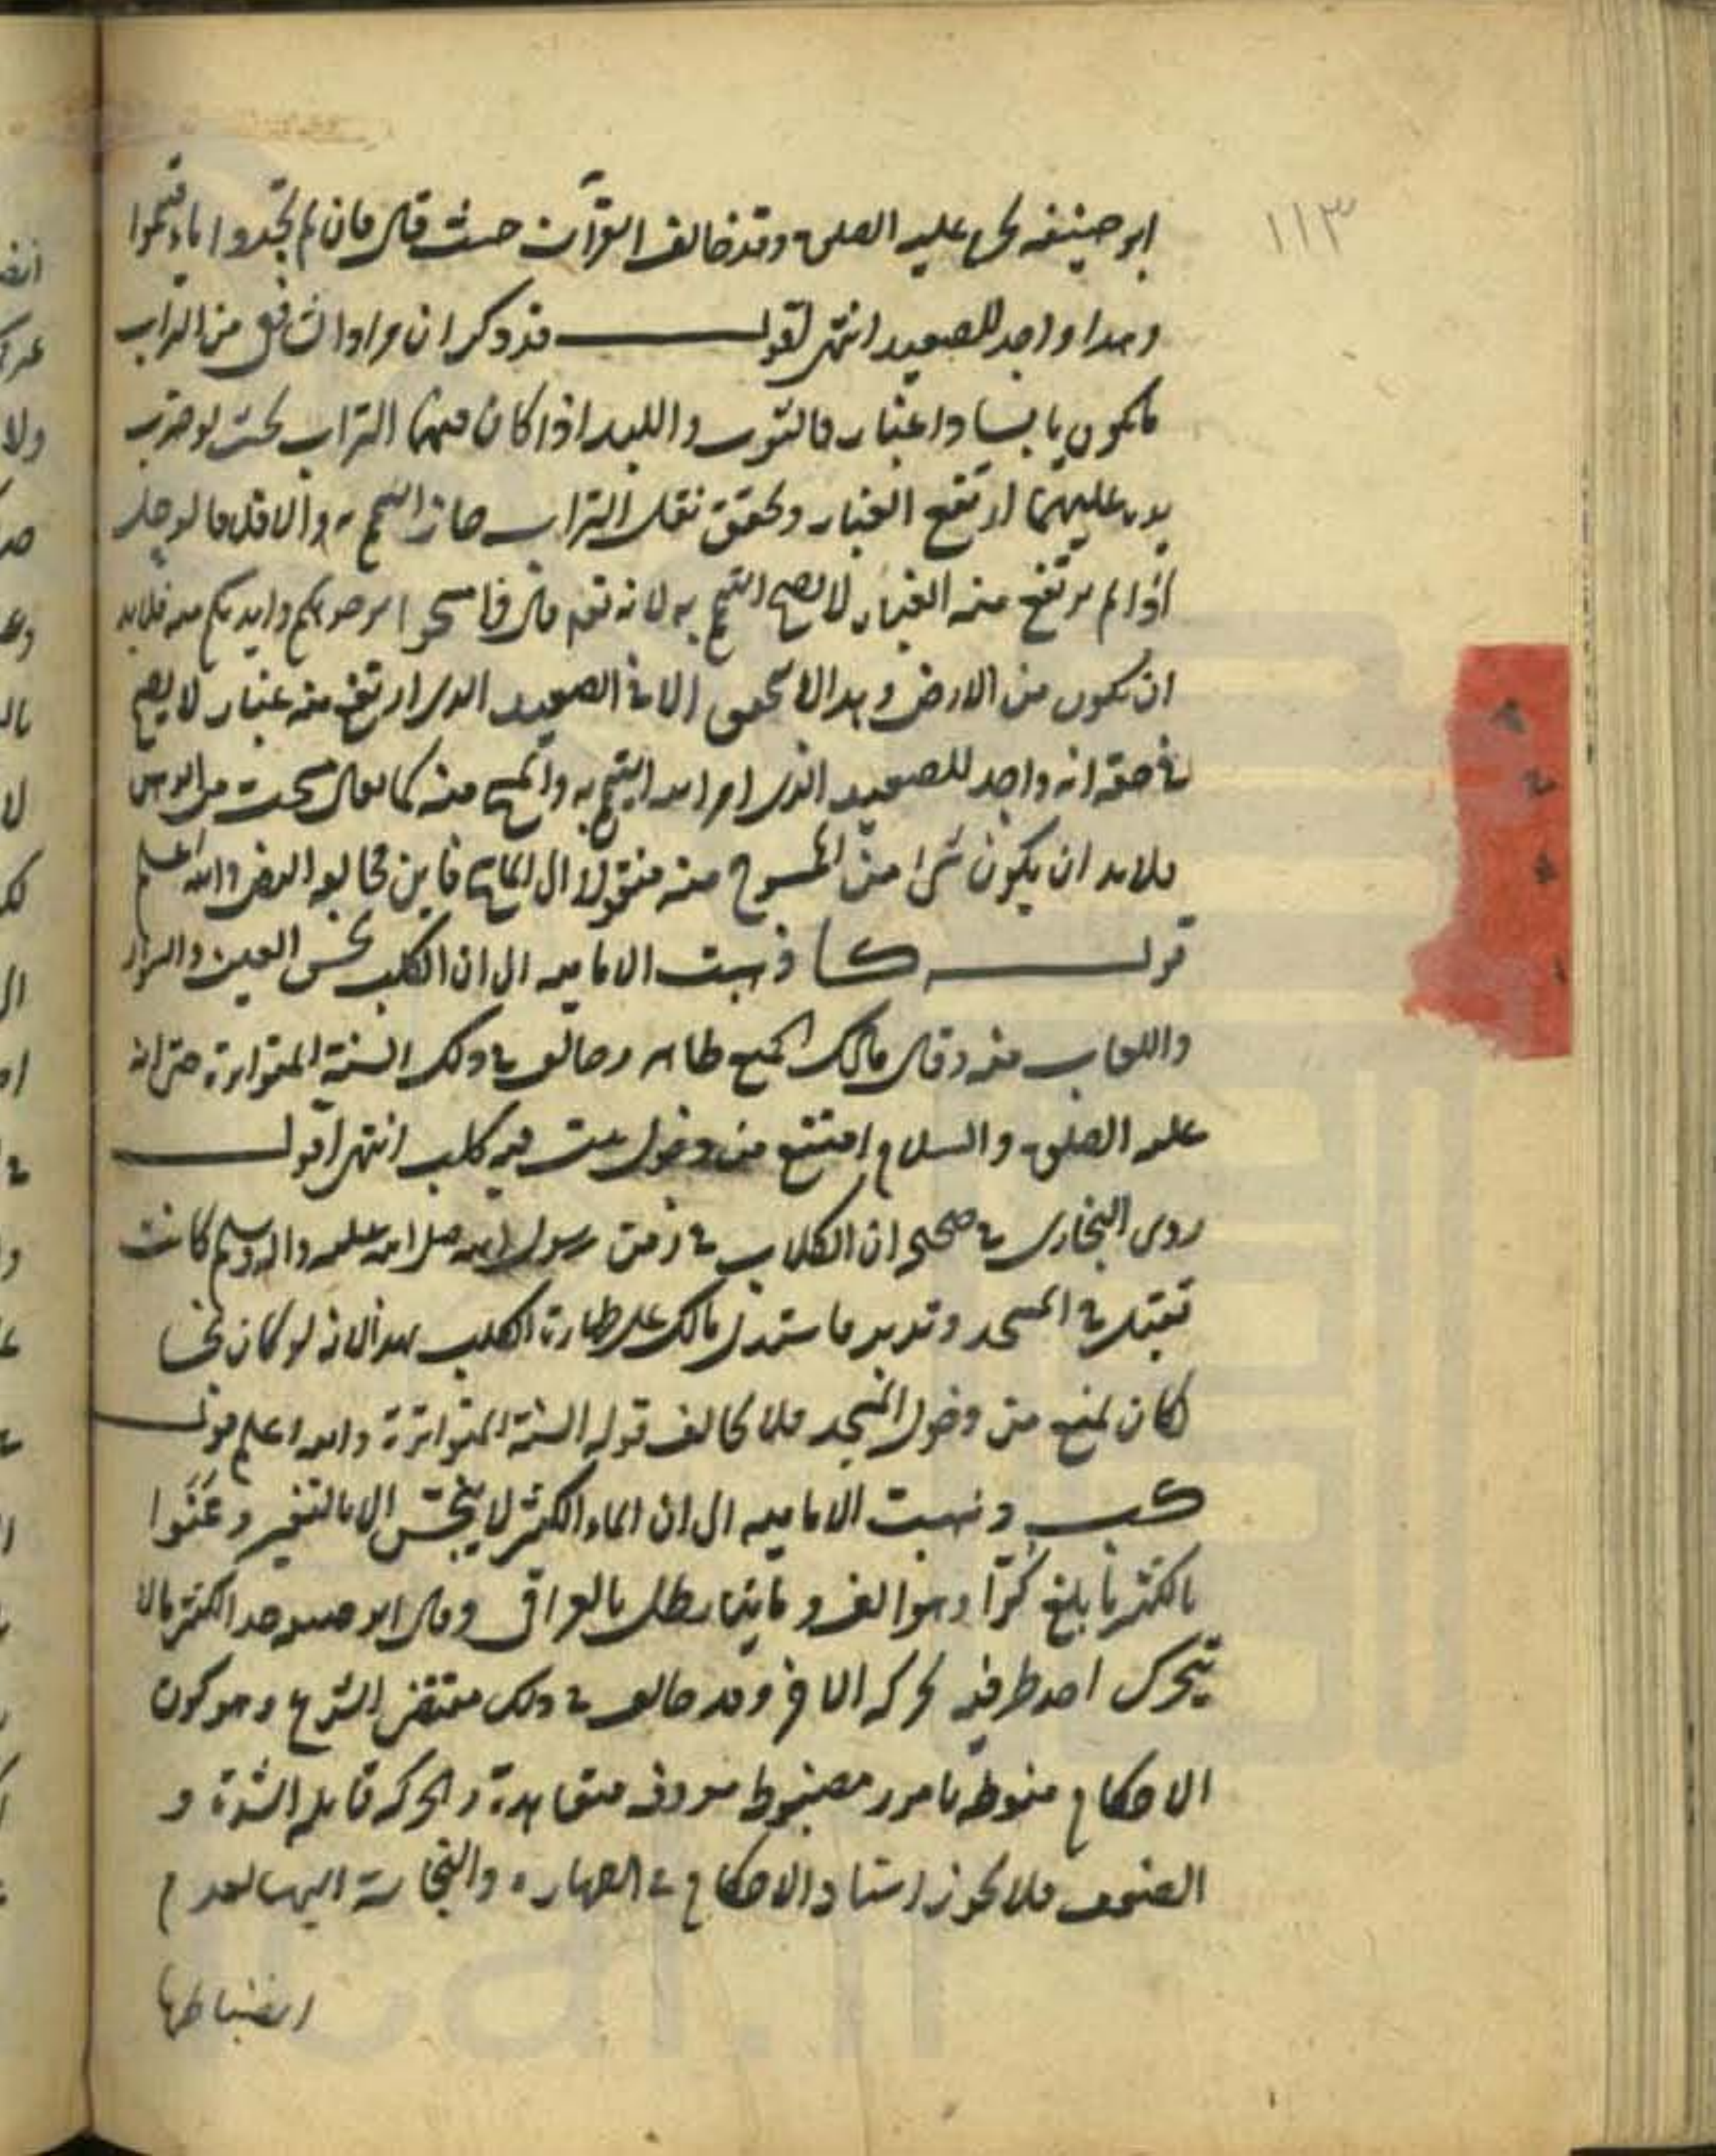 ١١٣
ابو حنيفه يحرم عليه الصلوة وقد خالف القرآن حيث قال فان لم تجدوا ماء فتيمموا
وهذا واجد للصعيد انتهى اقول قد ذكر ان مراد الشافعي من التراب
ما يكون يابسا ذا غبار فالثوب واللبد اذا كان فيهما التراب بحيث لو ضرب
يده عليهما ارتفع الغبار وتحقق نقل التراب جاز التيمم به والا فلا فالوحل
اذا لم يرتفع منه الغبار لا يصح التيمم به لانه تعم قال فامسحوا بوجوهكم وايديكم منه فلا بد
ان يكون من الارض وهذا لا يتحقق الا في الصعيد الذي ارتفع منه غبار لا يصح
في حقه انه واجد للصعيد الذي امر الله التيمم به والمسح منه كما يقال مسحت من الدهن
فلا بد ان يكون شئ من الممسوح منه منقولا الى الماسح فاين مخالفة النص والله اعلم
قوله كا ذهبت الاماميه الى ان الكلب نجس العين والسؤر
واللعاب منه وقال مالك الجميع طاهر وخالف في ذلك السنة المتواترة حتى انه
عليه الصلوة والسلام امتنع من دخول بيت فيه كلب انتهى اقول
روى البخاري في صحيحه ان الكلاب في زمن رسول الله صلى الله عليه واله وسلم كانت
تقبل في المسجد وتدبر فاستدل مالك على طهارة الكلب بهذا لانه لو كان نجسا
لكان لمنع من دخول المسجد فلا يخالف قوله السنة المتواترة والله اعلم قوله
كب وذهبت الاماميه الى ان الماء الكثير لا ينجس الا بالتغير وعَنَوا
بالكثير ما بلغ كُرّا وهو الف ومايتا رطل بالعراقي وقال ابو حنيفه حد الكثير ما لا
يتحرك احد طرفيه بحركه الاخر وقد خالف في ذلك مقتضى الشرع وهو كون
الاحكام منوطه بامور مضبوطه معروفه متعاهدة والحركه قابله الشدة و
الضعف فلا يجوز استناد الاحكام في الطهارة والنجاسة اليها لعدم
انضباطها